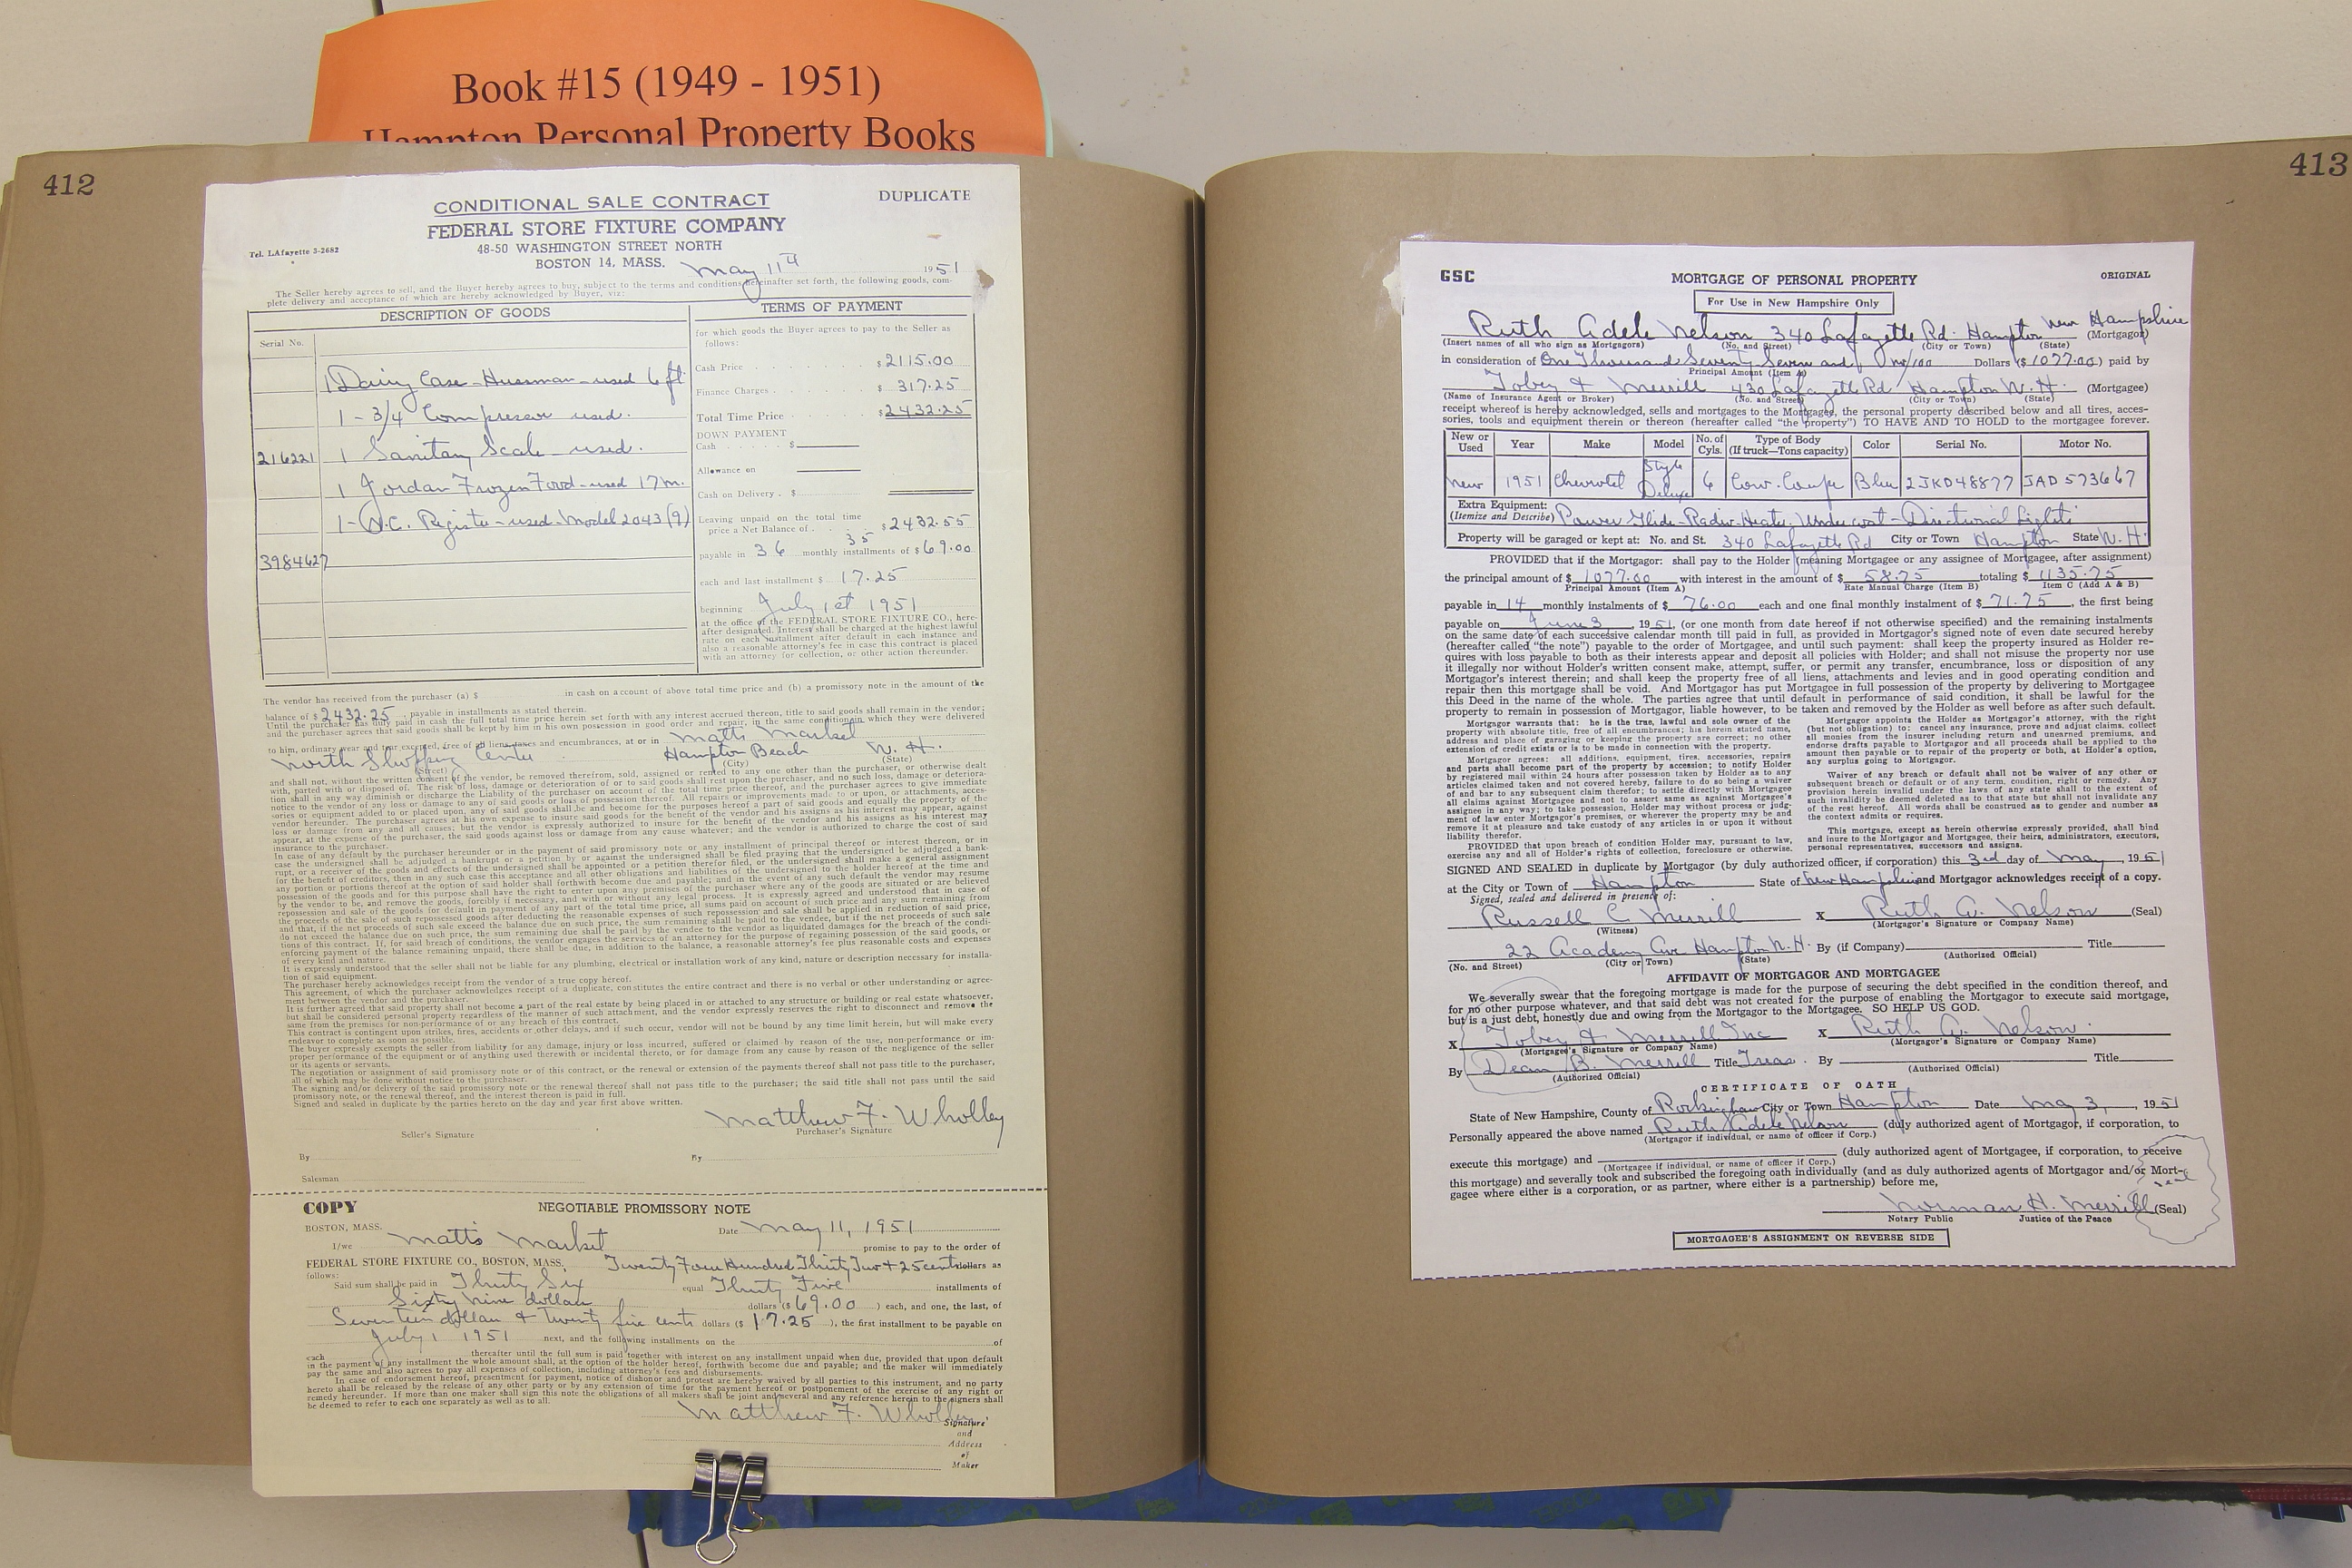 Book #15 (1949 - 1951)
Hampton Personal Property Books
412
CONDITIONAL SALE CONTRACT
DUPLICATE
FEDERAL STORE FIXTURE COMPANY
48-50 WASHINGTON STREET NORTH
Tel. LAfayette 3-2682
BOSTON 14, MASS. May 11th 1951
The Seller hereby agrees to sell, and the Buyer hereby agrees to buy, subject to the terms and conditions hereinafter set forth, the following goods, com-
plete delivery and acceptance of which are hereby acknowledged by Buyer, viz:
DESCRIPTION OF GOODS
Serial No.
1 Dairy Case - Hussman - used 6 ft
1 - 3/4 Compressor used.
216221 1 Sanitary Scale - used.
1 Jordan Frozen Food - used 17 m.
1 - N.C. Register - used - Model 2043 (9)
3984627
TERMS OF PAYMENT
for which goods the Buyer agrees to pay to the Seller as
follows:
Cash Price $ 2115.00
Finance Charges $ 317.25
Total Time Price $ 2432.25
DOWN PAYMENT
Cash $
Allowance on
Cash on Delivery $
Leaving unpaid on the total time
price a Net Balance of $ 2432.55
payable in 36 35 monthly installments of $ 69.00
each and last installment $ 17.25
beginning July 1st 1951
at the office of the FEDERAL STORE FIXTURE CO., here-
after designated. Interest shall be charged at the highest lawful
rate on each installment after default in each instance and
also a reasonable attorney's fee in case this contract is placed
with an attorney for collection, or other action thereunder.
The vendor has received from the purchaser (a) $ in cash on account of above total time price and (b) a promissory note in the amount of the
balance of $ 2432.25, payable in installments as stated therein.
Until the purchaser has duly paid in cash the full total time price herein set forth with any interest accrued thereon, title to said goods shall remain in the vendor;
and the purchaser agrees that said goods shall be kept by him in his own possession in good order and repair, in the same condition in which they were delivered
to him, ordinary wear and tear excepted, free of all liens, taxes and encumbrances, at or in Matts Market
North Shopping Center Hampton Beach N. H.
(Street) (City) (State)
and shall not, without the written consent of the vendor, be removed therefrom, sold, assigned or rented to any one other than the purchaser, or otherwise dealt
with, parted with or disposed of. The risk of loss, damage or deterioration of or to said goods shall rest upon the purchaser, and no such loss, damage or deteriora-
tion shall in any way diminish or discharge the Liability of the purchaser on account of the total time price thereof, and the purchaser agrees to give immediate
notice to the vendor of any loss or damage to any of said goods or loss of possession thereof. All repairs or improvements made to or upon, or attachments, acces-
sories or equipment added to or placed upon, any of said goods shall be and become for the purposes hereof a part of said goods and equally the property of the
vendor hereunder. The purchaser agrees at his own expense to insure said goods for the benefit of the vendor and his assigns as his interest may appear, against
loss or damage from any and all causes; but the vendor is expressly authorized to insure for the benefit of the vendor and his assigns as his interest may
appear, at the expense of the purchaser, the said goods against loss or damage from any cause whatever; and the vendor is authorized to charge the cost of said
insurance to the purchaser.
In case of any default by the purchaser hereunder or in the payment of said promissory note or any installment of principal thereof or interest thereon, or in
case the undersigned shall be adjudged a bankrupt or a petition by or against the undersigned shall be filed praying that the undersigned be adjudged a bank-
rupt, or a receiver of the goods and effects of the undersigned shall be appointed or a petition therefor filed, or the undersigned shall make a general assignment
for the benefit of creditors, then in any such case this acceptance and all other obligations and liabilities of the undersigned to the holder hereof at the time and
any portion or portions thereof at the option of said holder shall forthwith become due and payable; and in the event of any such default the vendor may resume
possession of the goods and for this purpose shall have the right to enter upon any premises of the purchaser where any of the goods are situated or are believed
by the vendor to be, and remove the goods, forcibly if necessary, and with or without any legal process. It is expressly agreed and understood that in case of
repossession and sale of the goods for default in payment of any part of the total time price, all sums paid on account of such price and any sum remaining from
the proceeds of sale of such repossessed goods after deducting the reasonable expenses of such repossession and sale shall be applied in reduction of said price,
and that, if the net proceeds of such sale exceed the balance due on such price, the sum remaining shall be paid to the vendee, but if the net proceeds of such sale
do not exceed the balance due on such price, the sum remaining due shall be paid by the vendee to the vendor as liquidated damages for the breach of the condi-
tions of this contract. If, for said breach of conditions, the vendor engages the services of an attorney for the purpose of regaining possession of the said goods, or
enforcing payment of the balance remaining unpaid, there shall be due, in addition to the balance, a reasonable attorney's fee plus reasonable costs and expenses
of every kind and nature.
It is expressly understood that the seller shall not be liable for any plumbing, electrical or installation work of any kind, nature or description necessary for installa-
tion of said equipment.
The purchaser hereby acknowledges receipt from the vendor of a true copy hereof.
This agreement, of which the purchaser acknowledges receipt of a duplicate, constitutes the entire contract and there is no verbal or other understanding or agree-
ment between the vendor and the purchaser.
It is further agreed that said property shall not become a part of the real estate by being placed in or attached to any structure or building or real estate whatsoever,
but shall be considered personal property regardless of the manner of such attachment, and the vendor expressly reserves the right to disconnect and remove the
same from the premises for non-performance of or any breach of this contract.
This contract is contingent upon strikes, fires, accidents or other delays, and if such occur, vendor will not be bound by any time limit herein, but will make every
endeavor to complete as soon as possible.
The buyer expressly exempts the seller from liability for any damage, injury or loss incurred, suffered or claimed by reason of the use, non-performance or im-
proper performance of the equipment or of anything used therewith or incidental thereto, or for damage from any cause by reason of the negligence of the seller
or its agents or servants.
The negotiation or assignment of said promissory note or of this contract, or the renewal or extension of the payments thereof shall not pass title to the purchaser,
all of which may be done without notice to the purchaser.
The signing and/or delivery of the said promissory note or the renewal thereof shall not pass title to the purchaser; the said title shall not pass until the said
promissory note, or the renewal thereof, and the interest thereon is paid in full.
Signed and sealed in duplicate by the parties hereto on the day and year first above written.
Matthew F. Wholley
Seller's Signature Purchaser's Signature
By By
Salesman
COPY NEGOTIABLE PROMISSORY NOTE
BOSTON, MASS. Date May 11, 1951
I/we Matts Market promise to pay to the order of
FEDERAL STORE FIXTURE CO., BOSTON, MASS. Twenty Four Hundred Thirty Two + 25 cents dollars as
follows:
Said sum shall be paid in Thirty Six equal Thirty Five installments of
Sixty Nine dollars dollars ($ 69.00 ) each, and one, the last, of
Seventeen dollars + twenty five cents dollars ($ 17.25 ), the first installment to be payable on
July 1 1951 next, and the following installments on the of
each thereafter until the full sum is paid together with interest on any installment unpaid when due, provided that upon default
in the payment of any installment the whole amount shall, at the option of the holder hereof, forthwith become due and payable; and the maker will immediately
pay the same and also agrees to pay all expenses of collection, including attorney's fees and disbursements.
In case of endorsement hereof, presentment for payment, notice of dishonor and protest are hereby waived by all parties to this instrument, and no party
hereto shall be released by the release of any other party or by any extension of time for the payment hereof or postponement of the exercise of any right or
remedy hereunder. If more than one maker shall sign this note the obligations of all makers shall be joint and several and any reference herein to the signers shall
be deemed to refer to each one separately as well as to all.
Matthew F. Wholley
Signature
and
Address
of
Maker
413
GSC MORTGAGE OF PERSONAL PROPERTY ORIGINAL
For Use in New Hampshire Only
Ruth Adele Nelson 340 Lafayette Rd. Hampton New Hampshire (Mortgagor)
(Insert names of all who sign as Mortgagors) (No. and Street) (City or Town) (State)
in consideration of One Thousand Seventy Seven and no/100 Dollars ($ 1077.00) paid by
Principal Amount (Item A)
Tobey & Merrill 430 Lafayette Rd Hampton N. H. (Mortgagee)
(Name of Insurance Agent or Broker) (No. and Street) (City or Town) (State)
receipt whereof is hereby acknowledged, sells and mortgages to the Mortgagee, the personal property described below and all tires, acces-
sories, tools and equipment therein or thereon (hereafter called "the property") TO HAVE AND TO HOLD to the mortgagee forever.
New or Used Year Make Model No. of Cyls. Type of Body (If truck—Tons capacity) Color Serial No. Motor No.
New 1951 Chevrolet Style Deluxe 6 Conv. Coupe Blue 2JKD48877 JAD 573667
Extra Equipment: (Itemize and Describe) Power Glide - Radio - Heater, Undercoat - Directional Lights
Property will be garaged or kept at: No. and St. 340 Lafayette Rd City or Town Hampton State N. H.
PROVIDED that if the Mortgagor: shall pay to the Holder (meaning Mortgagee or any assignee of Mortgagee, after assignment)
the principal amount of $ 1077.00 with interest in the amount of $ 58.75 totaling $ 1135.75
Principal Amount (Item A) Rate Manual Charge (Item B) Item C (Add A & B)
payable in 14 monthly instalments of $ 76.00 each and one final monthly instalment of $ 71.75, the first being
payable on June 3, 1951, (or one month from date hereof if not otherwise specified) and the remaining instalments
on the same date of each successive calendar month till paid in full, as provided in Mortgagor's signed note of even date secured hereby
(hereafter called "the note") payable to the order of Mortgagee, and until such payment: shall keep the property insured as Holder re-
quires with loss payable to both as their interests appear and deposit all policies with Holder; and shall not misuse the property nor use
it illegally nor without Holder's written consent make, attempt, suffer, or permit any transfer, encumbrance, loss or disposition of any
Mortgagor's interest therein; and shall keep the property free of all liens, attachments and levies and in good operating condition and
repair then this mortgage shall be void. And Mortgagor has put Mortgagee in full possession of the property by delivering to Mortgagee
this Deed in the name of the whole. The parties agree that until default in performance of said condition, it shall be lawful for the
property to remain in possession of Mortgagor, liable however, to be taken and removed by the Holder as well before as after such default.
Mortgagor warrants that: he is the true, lawful and sole owner of the
property with absolute title, free of all encumbrances; his herein stated name,
address and place of garaging or keeping the property are correct; no other
extension of credit exists or is to be made in connection with the property.
Mortgagor agrees: all additions, equipment, tires, accessories, repairs
and parts shall become part of the property by accession; to notify Holder
by registered mail within 24 hours after possession taken by Holder as to any
articles claimed taken and not covered hereby, failure to do so being a waiver
of and bar to any subsequent claim therefor; to settle directly with Mortgagee
all claims against Mortgagee and not to assert same as against Mortgagee's
assigns in any way; to take possession, Holder may without process or judg-
ment of law enter Mortgagor's premises, or wherever the property may be and
remove it at pleasure and take custody of any articles in or upon it without
liability therefor.
PROVIDED that upon breach of condition Holder may, pursuant to law,
exercise any and all of Holder's rights of collection, foreclosure or otherwise.
Mortgagor appoints the Holder as Mortgagor's attorney, with the right
(but not obligation) to: cancel any insurance, prove and adjust claims, collect
all monies from the insurer including return and unearned premiums, and
endorse drafts payable to Mortgagor and all proceeds shall be applied to the
amount then payable or to repair of the property or both, at Holder's option,
any surplus going to Mortgagor.
Waiver of any breach or default shall not be waiver of any other or
subsequent breach or default or of any term, condition, right or remedy. Any
provision herein invalid under the laws of any state shall to the extent of
such invalidity be deemed deleted as to that state but shall not invalidate any
of the rest hereof. All words shall be construed as to gender and number as
the context admits or requires.
This mortgage, except as herein otherwise expressly provided, shall bind
and inure to the Mortgagor and Mortgagee, their heirs, administrators, executors,
personal representatives, successors and assigns.
SIGNED AND SEALED in duplicate by Mortgagor (by duly authorized officer, if corporation) this 3rd day of May, 1951
at the City or Town of Hampton State of New Hampshire and Mortgagor acknowledges receipt of a copy.
Signed, sealed and delivered in presence of:
Russell C. Merrill X Ruth A. Nelson (Seal)
(Witness) (Mortgagor's Signature or Company Name)
22 Academy Ave Hampton N.H. By (if Company) Title
(No. and Street) (City or Town) (State) (Authorized Official)
AFFIDAVIT OF MORTGAGOR AND MORTGAGEE
We severally swear that the foregoing mortgage is made for the purpose of securing the debt specified in the condition thereof, and
for no other purpose whatever, and that said debt was not created for the purpose of enabling the Mortgagor to execute said mortgage,
but is a just debt, honestly due and owing from the Mortgagor to the Mortgagee. SO HELP US GOD.
X Tobey & Merrill Inc X Ruth A. Nelson.
(Mortgagee's Signature or Company Name) (Mortgagor's Signature or Company Name)
By Dean B. Merrill Title Treas. By Title
(Authorized Official) (Authorized Official)
CERTIFICATE OF OATH
State of New Hampshire, County of Rockingham City or Town Hampton Date May 3, 1951
Personally appeared the above named Ruth Adele Nelson (duly authorized agent of Mortgagor, if corporation, to
(Mortgagor if individual, or name of officer if Corp.)
execute this mortgage) and (duly authorized agent of Mortgagee, if corporation, to receive
(Mortgagee if individual, or name of officer if Corp.)
this mortgage) and severally took and subscribed the foregoing oath individually (and as duly authorized agents of Mortgagor and/or Mort-
gagee where either is a corporation, or as partner, where either is a partnership) before me,
seal
Norman H. Merrill (Seal)
Notary Public Justice of the Peace
MORTGAGEE'S ASSIGNMENT ON REVERSE SIDE